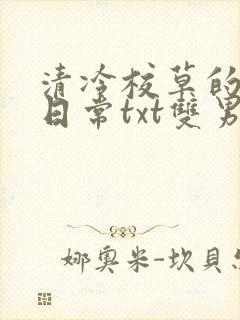 清冷校草的
日常txt雙男
娜奧米-坎貝